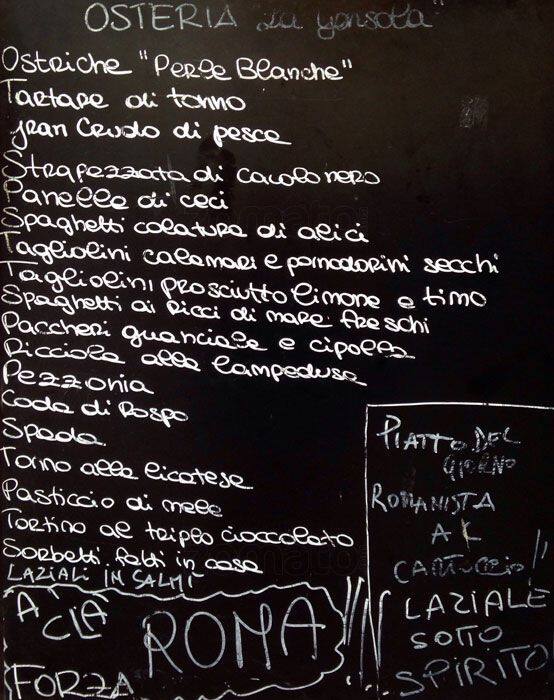 OSTERIA "La Gensola"
Ostriche "Perle Blanche"
Tartare di tonno
Gran Crudo di pesce
Strapazzata di cavolo nero
Panelle di ceci
Spaghetti colatura di alici
Tagliolini calamari e pomodorini secchi
Tagliolini prosciutto limone e timo
Spaghetti ai Ricci di mare freschi
Paccheri guanciale e cipolla
Ricciola alla Lampedusa
Pezzonia
Coda di Rospo
Spada
Tonno alla licatese
Pasticcio di mele
Tortino al triplo cioccolato
Sorbetti fatti in casa
LAZIALI IN SALMI'
A CLA
ROMA
FORZA
PIATTO DEL
GIORNO
ROMANISTA
AL
CARTOCCIO!!
LAZIALE
SOTTO
SPIRITO